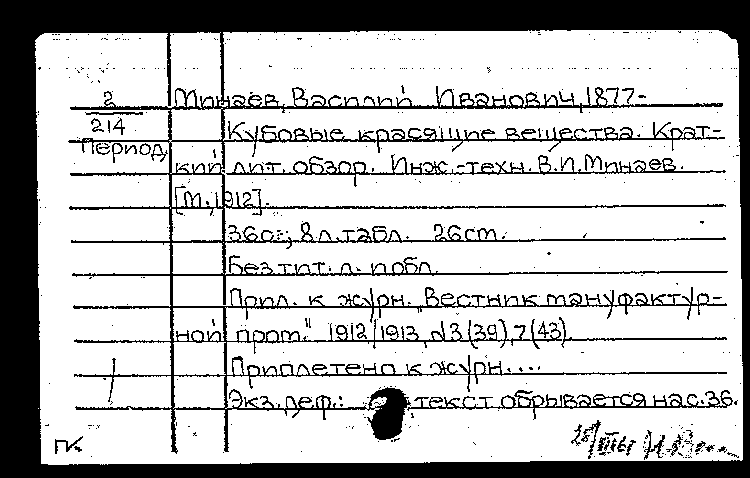 2 Минаев, Василий Иванович, 1877-
214 Кубовые красящие вещества. Крат-
Период. кий лит. обзор. Инж.-техн. В.И. Минаев.
[М., 1912].
36 с.; 8 л. табл. 26 см.
Без тит. л. и обл.
Прил. к журн. "Вестник мануфактур-
ной пром." 1912/1913, №3(39), 7(43).
Приплетено к журн....
Экз. деф.: текст обрывается на с. 36.
ГК.